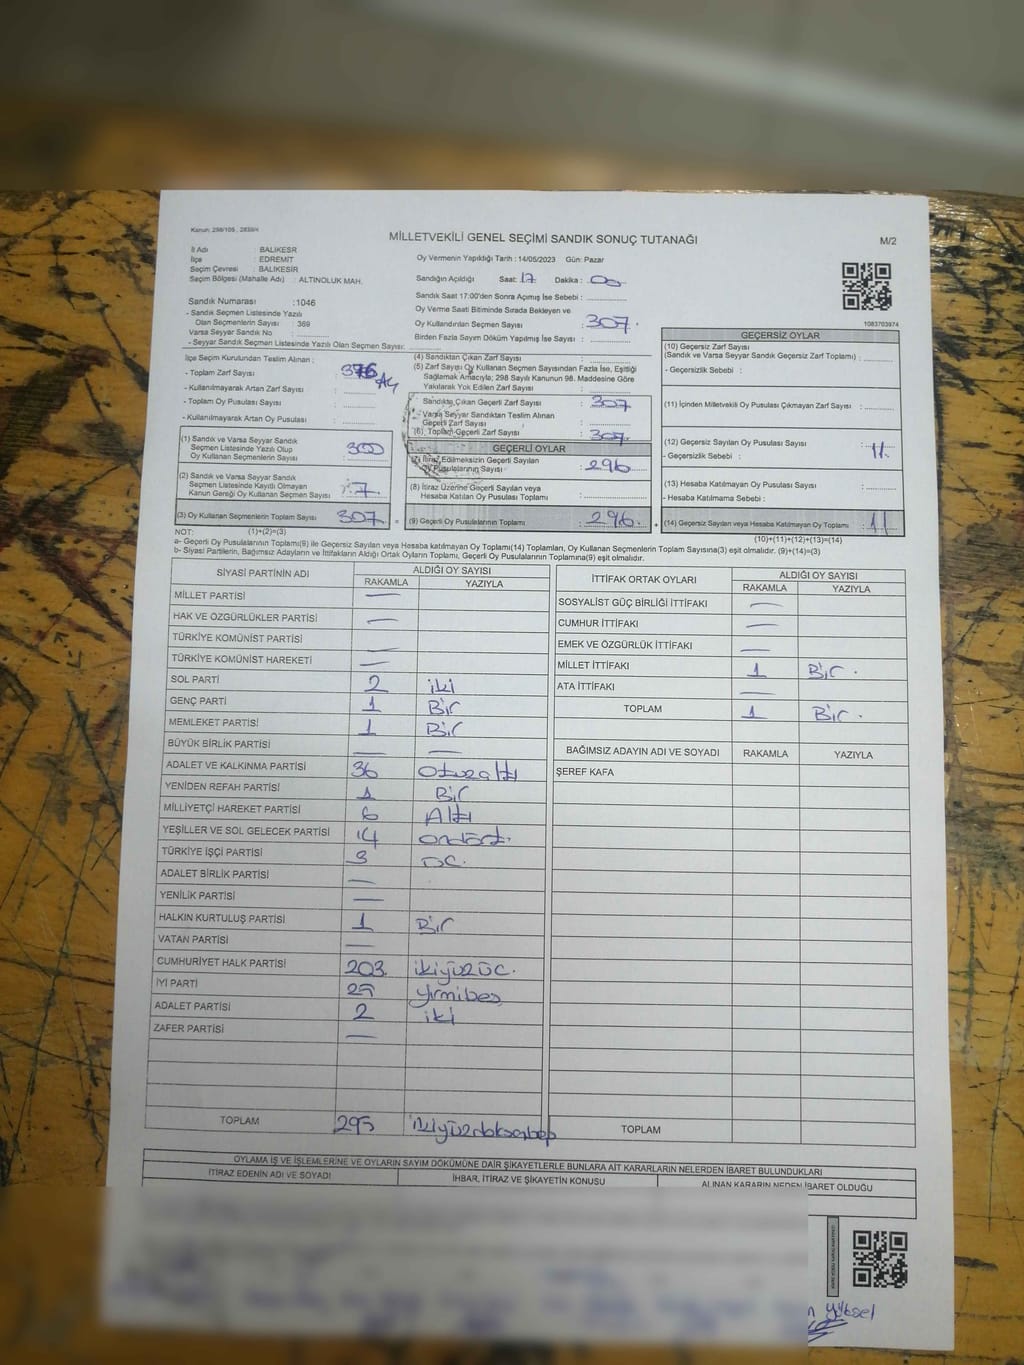 Kanun: 298/105 , 2839/4
MİLLETVEKİLİ GENEL SEÇİMİ SANDIK SONUÇ TUTANAĞI
M/2
İl Adı : BALIKESR
İlçe : EDREMİT
Seçim Çevresi : BALIKESİR
Seçim Bölgesi (Mahalle Adı) : ALTINOLUK MAH.
Oy Vermenin Yapıldığı Tarih : 14/05/2023 Gün: Pazar
Sandığın Açıldığı Saat: 17 Dakika : 00
Sandık Saat 17:00'den Sonra Açılmış İse Sebebi :
Oy Verme Saati Bitiminde Sırada Bekleyen ve
Oy Kullandırılan Seçmen Sayısı : 307
Birden Fazla Sayım Döküm Yapılmış İse Sayısı :
1083703974
Sandık Numarası : 1046
- Sandık Seçmen Listesinde Yazılı
Olan Seçmenlerin Sayısı : 369
Varsa Seyyar Sandık No :
- Seyyar Sandık Seçmen Listesinde Yazılı Olan Seçmen Sayısı:
İlçe Seçim Kurulundan Teslim Alınan :
- Toplam Zarf Sayısı
- Kullanılmayarak Artan Zarf Sayısı :
- Toplam Oy Pusulası Sayısı :
- Kullanılmayarak Artan Oy Pusulası :
(1) Sandık ve Varsa Seyyar Sandık
Seçmen Listesinde Yazılı Olup
Oy Kullanan Seçmenlerin Sayısı : 300
(2) Sandık ve Varsa Seyyar Sandık
Seçmen Listesinde Kayıtlı Olmayan
Kanun Gereği Oy Kullanan Seçmen Sayısı : 7
(3) Oy Kullanan Seçmenlerin Toplam Sayısı 307
(4) Sandıktan Çıkan Zarf Sayısı :
(5) Zarf Sayısı Oy Kullanan Seçmen Sayısından Fazla İse, Eşitliği
Sağlamak Amacıyla; 298 Sayılı Kanunun 98. Maddesine Göre
Yakılarak Yok Edilen Zarf Sayısı :
Sandıkta Çıkan Geçerli Zarf Sayısı : 307
Varsa Seyyar Sandıktan Teslim Alınan
Geçerli Zarf Sayısı :
(6) Toplam Geçerli Zarf Sayısı : 307
GEÇERLİ OYLAR
(7) İtiraz Edilmeksizin Geçerli Sayılan
Oy Pusulalarının Sayısı : 296
(8) İtiraz Üzerine Geçerli Sayılan veya
Hesaba Katılan Oy Pusulası Toplamı :
= (9) Geçerli Oy Pusulalarının Toplamı : 296
GEÇERSİZ OYLAR
(10) Geçersiz Zarf Sayısı
(Sandık ve Varsa Seyyar Sandık Geçersiz Zarf Toplamı) :
- Geçersizlik Sebebi :
(11) İçinden Milletvekili Oy Pusulası Çıkmayan Zarf Sayısı :
(12) Geçersiz Sayılan Oy Pusulası Sayısı : 11
- Geçersizlik Sebebi :
(13) Hesaba Katılmayan Oy Pusulası Sayısı :
- Hesaba Katılmama Sebebi :
+ (14) Geçersiz Sayılan veya Hesaba Katılmayan Oy Toplamı : 11
NOT: (1)+(2)=(3)
(10)+(11)+(12)+(13)=(14)
a- Geçerli Oy Pusulaları Toplamı(9) ile Geçersiz Sayılan veya Hesaba katılmayan Oy Toplamı(14) Toplamları, Oy Kullanan Seçmenlerin Toplam Sayısına(3) eşit olmalıdır. (9)+(14)=(3)
b- Siyasi Partilerin, Bağımsız Adayların ve İttifakların Aldığı Ortak Oyların Toplamı, Geçerli Oy Pusulalarının Toplamına(9) eşit olmalıdır.
SİYASİ PARTİNİN ADI ALDIĞI OY SAYISI
RAKAMLA YAZIYLA
MİLLET PARTİSİ —
HAK VE ÖZGÜRLÜKLER PARTİSİ —
TÜRKİYE KOMÜNİST PARTİSİ —
TÜRKİYE KOMÜNİST HAREKETİ —
SOL PARTİ 2 iki
GENÇ PARTİ 1 Bir
MEMLEKET PARTİSİ 1 Bir
BÜYÜK BİRLİK PARTİSİ — —
ADALET VE KALKINMA PARTİSİ 36 otuzaltı
YENİDEN REFAH PARTİSİ 1 Bir
MİLLİYETÇİ HAREKET PARTİSİ 6 Altı
YEŞİLLER VE SOL GELECEK PARTİSİ 14 ondört.
TÜRKİYE İŞÇİ PARTİSİ 3 üç.
ADALET BİRLİK PARTİSİ —
YENİLİK PARTİSİ —
HALKIN KURTULUŞ PARTİSİ 1 Bir
VATAN PARTİSİ —
CUMHURİYET HALK PARTİSİ 203 ikiyüzüç.
İYİ PARTİ 25 yirmibeş
ADALET PARTİSİ 2 iki
ZAFER PARTİSİ —
TOPLAM 295
İTTİFAK ORTAK OYLARI ALDIĞI OY SAYISI
RAKAMLA YAZIYLA
SOSYALİST GÜÇ BİRLİĞİ İTTİFAKI —
CUMHUR İTTİFAKI —
EMEK VE ÖZGÜRLÜK İTTİFAKI —
MİLLET İTTİFAKI 1 Bir.
ATA İTTİFAKI —
TOPLAM 1 Bir.
BAĞIMSIZ ADAYIN ADI VE SOYADI RAKAMLA YAZIYLA
ŞEREF KAFA
TOPLAM
OYLAMA İŞ VE İŞLEMLERİNE VE OYLARIN SAYIM DÖKÜMÜNE DAİR ŞİKAYETLERLE BUNLARA AİT KARARLARIN NELERDEN İBARET BULUNDUKLARI
İTİRAZ EDENİN ADI VE SOYADI İHBAR, İTİRAZ VE ŞİKAYETİN KONUSU ALINAN KARARIN NEDEN İBARET OLDUĞU
Yüksel